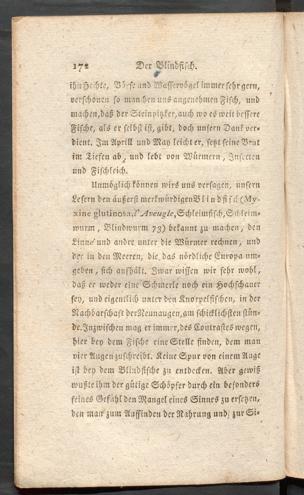 172 Der Blindfisch.
ihn Hechte, Börse und Wasservögel immer sehr gern,
verschonen so manchen uns angenehmen Fisch, und
machen, daß der Steinpitzker, auch wo es weit bessere
Fische, als er selbst ist, gibt, doch unsern Dank ver-
dient. Im Aprill und May leicht er, setzt seine Brut
im Tiefen ab, und lebt von Würmern, Insecten
und Fischleich.
Unmöglich können wirs uns versagen, unsern
Lesern den äußerst merkwürdigen Blindfisch (My-
xine glutinosa, l'Aveugle, Schleimfisch, Schleim-
wurm, Blindwurm 73) bekannt zu machen, den
Linne und andre unter die Würmer rechnen, und
der in den Meeren, die das nördliche Europa um-
geben, sich aufhält. Zwar wissen wir sehr wohl,
daß er weder eine Schmerle noch ein Hochschauer
sey, und eigentlich unter den Knorpelfischen, in der
Nachbarschaft der Neunaugen, am schicklichsten stün-
de. Inzwischen mag er immer, des Contrastes wegen,
hier bey dem Fische eine Stelle finden, dem man
vier Augen zuschreibt. Keine Spur von einem Auge
ist bey dem Blindfische zu entdecken. Aber gewiß
wußte ihm der gütige Schöpfer durch ein besonders
feines Gefühl den Mangel eines Sinnes zu ersetzen,
den man zum Auffinden der Nahrung und zur Si-